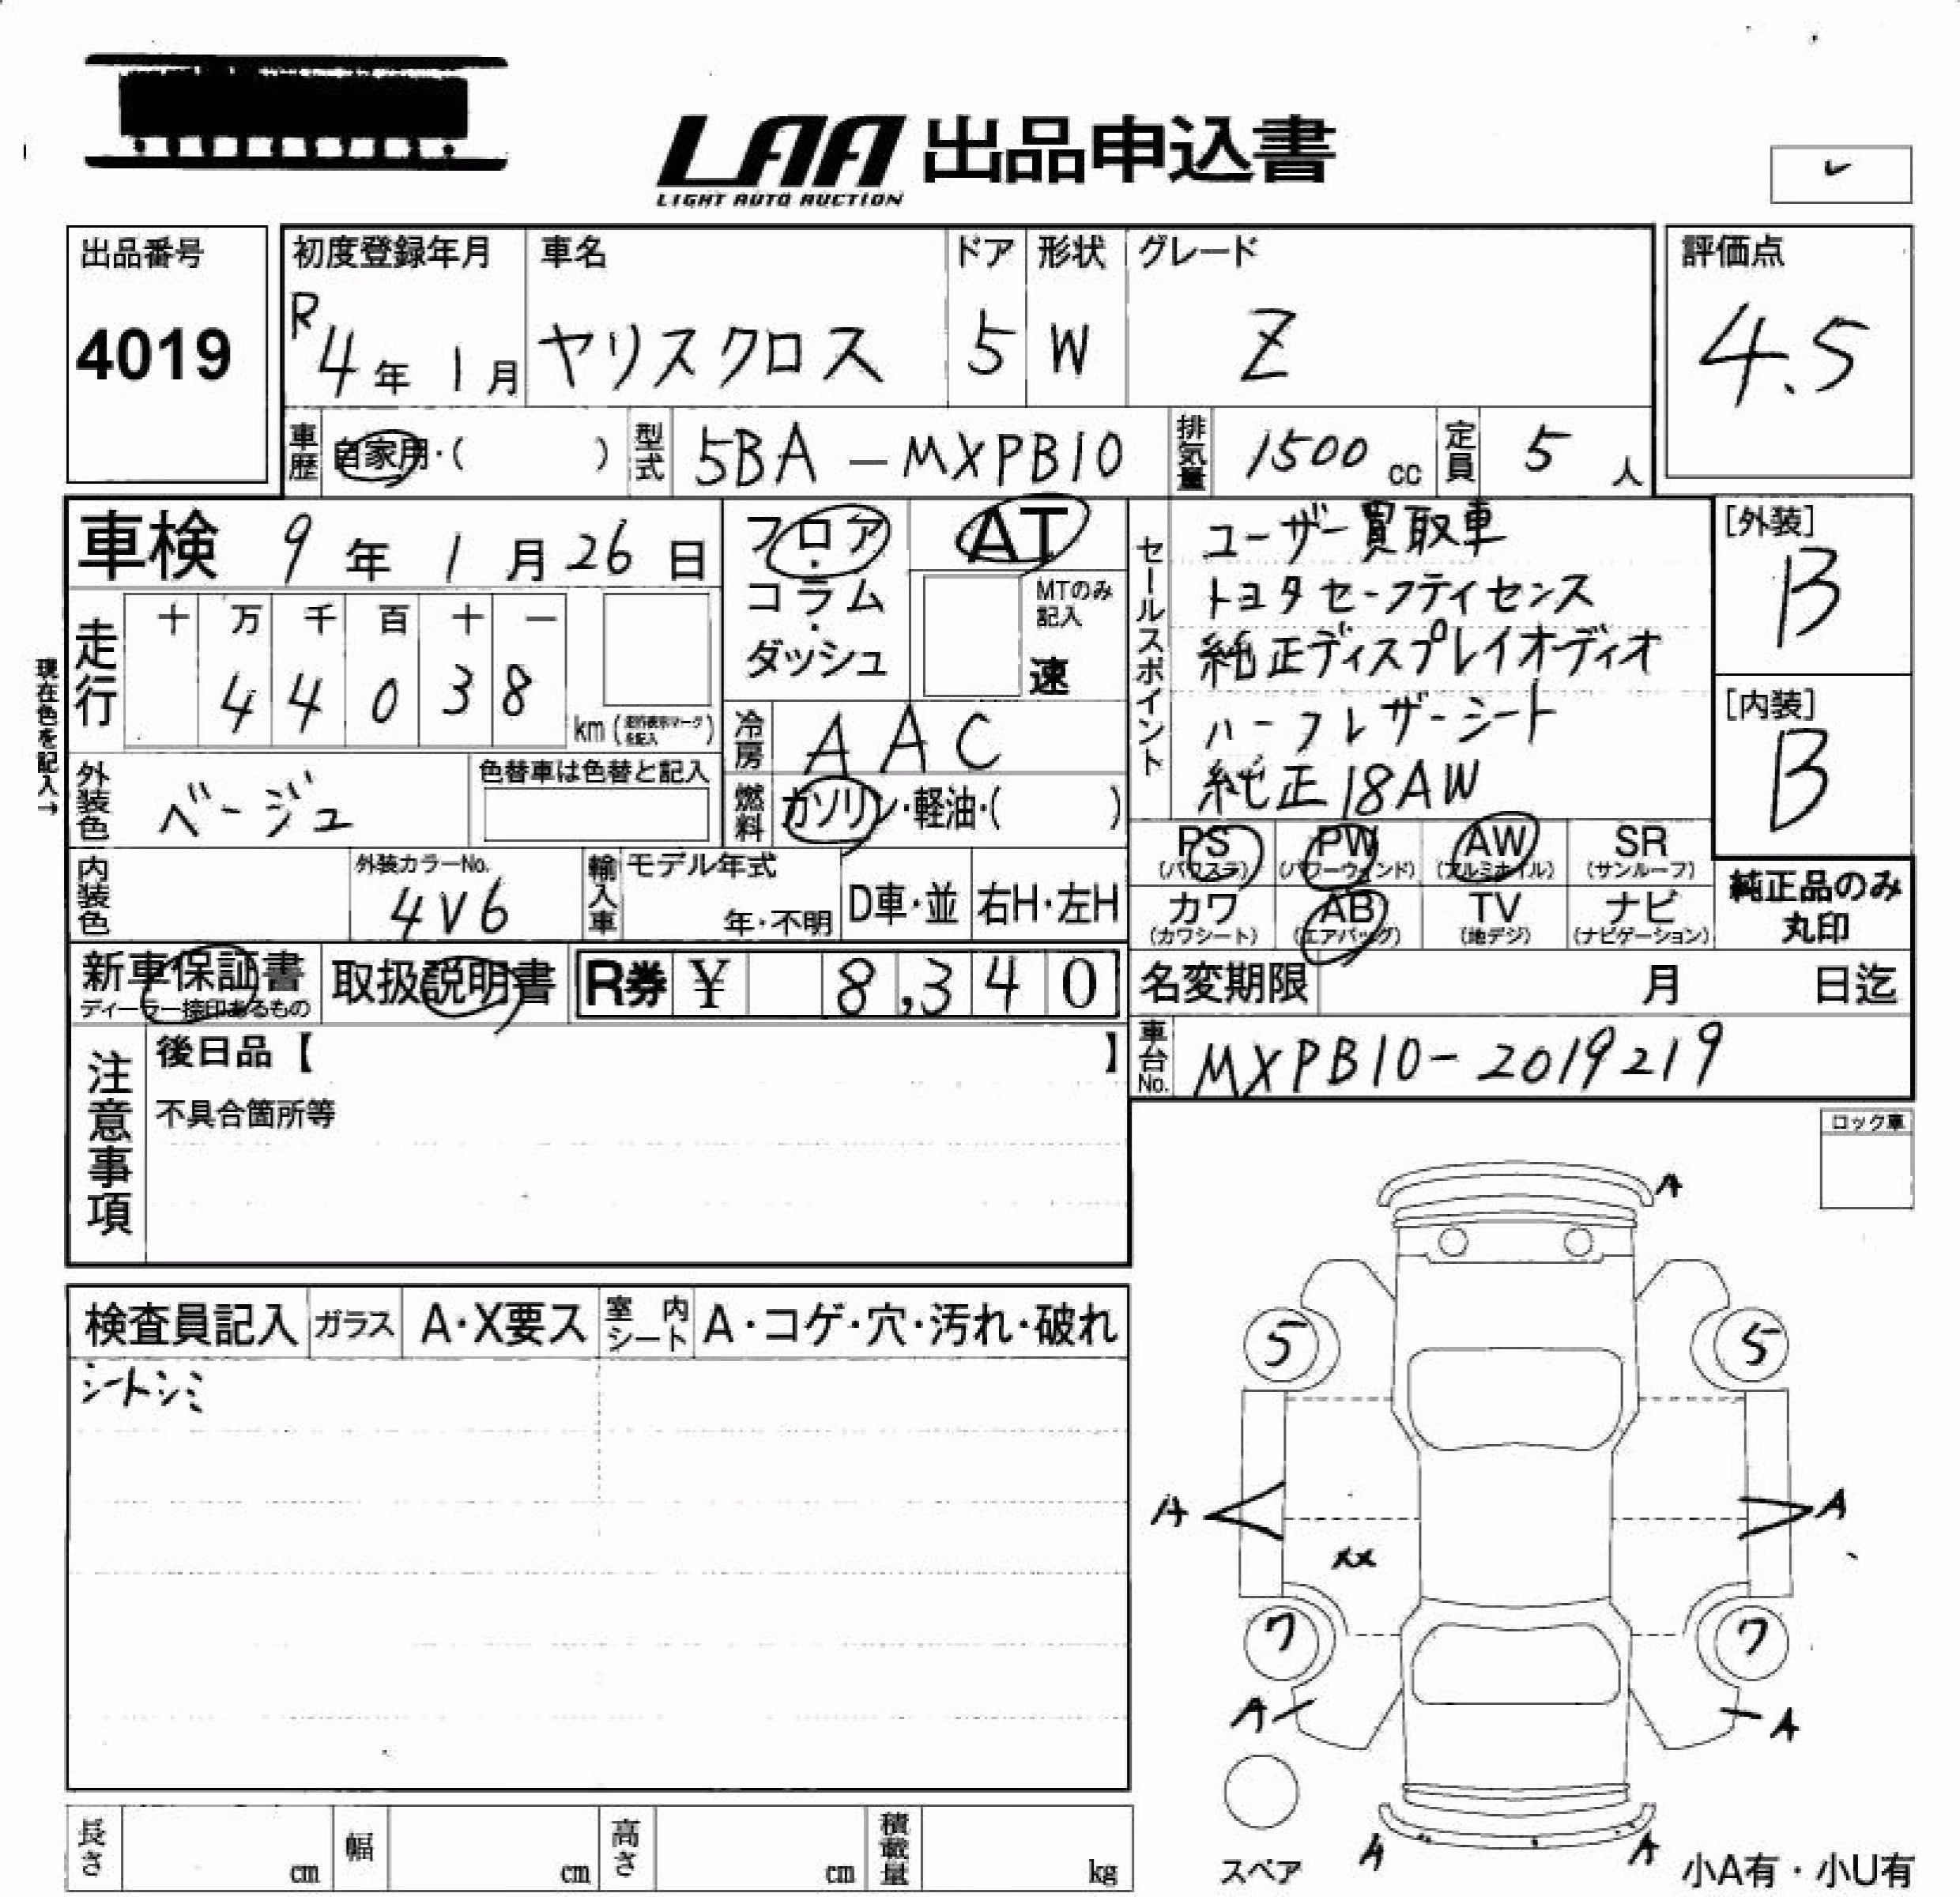 LAA 出品申込書
LIGHT AUTO AUCTION
✓
出品番号
4019
初度登録年月
R4年 1月
車名
ヤリスクロス
ドア
5
形状
W
グレード
Z
評価点
4.5
車歴
自家用・( )
型式
5BA-MXPB10
排気量
1500 cc
定員
5 人
車検 9年 1月 26日
フロア・コラム・ダッシュ
AT
MTのみ記入
速
セールスポイント
ユーザー買取車
トヨタセーフティセンス
純正ディスプレイオーディオ
ハーフレザーシート
純正18AW
[外装]
B
[内装]
B
現在色を記入→
走行
十 万 千 百 十 一
4 4 0 3 8
km (走行表示マークを記入)
冷房
AAC
外装色
ベージュ
色替車は色替と記入
燃料
ガソリン・軽油・( )
PS
(パワステ)
PW
(パワーウィンド)
AW
(アルミホイル)
SR
(サンルーフ)
カワ
(カワシート)
AB
(エアバッグ)
TV
(地デジ)
ナビ
(ナビゲーション)
純正品のみ
丸印
内装色
外装カラーNo.
4V6
輸入車
モデル年式
年・不明
D車・並
右H・左H
新車保証書
ディーラー捺印あるもの
取扱説明書
R券 ¥ 8,340
名変期限 月 日迄
車台No.
MXPB10-2019219
注意事項
後日品【 】
不具合箇所等
ロック車
検査員記入
ガラス
A・X要ス
室内シート
A・コゲ・穴・汚れ・破れ
シートシミ
A
5 5
A A
XX
7 7
A A
スペア
A A
小A有・小U有
長さ cm
幅 cm
高さ cm
積載量 kg